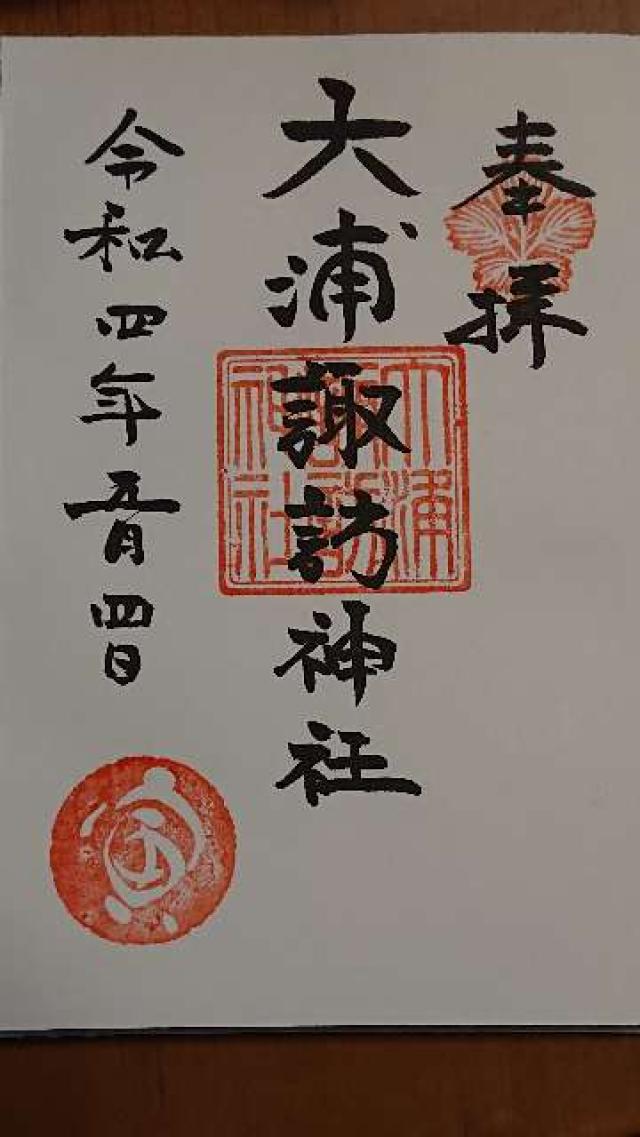 奉拝
大浦諏訪神社
大浦諏訪神社
令和四年五月四日